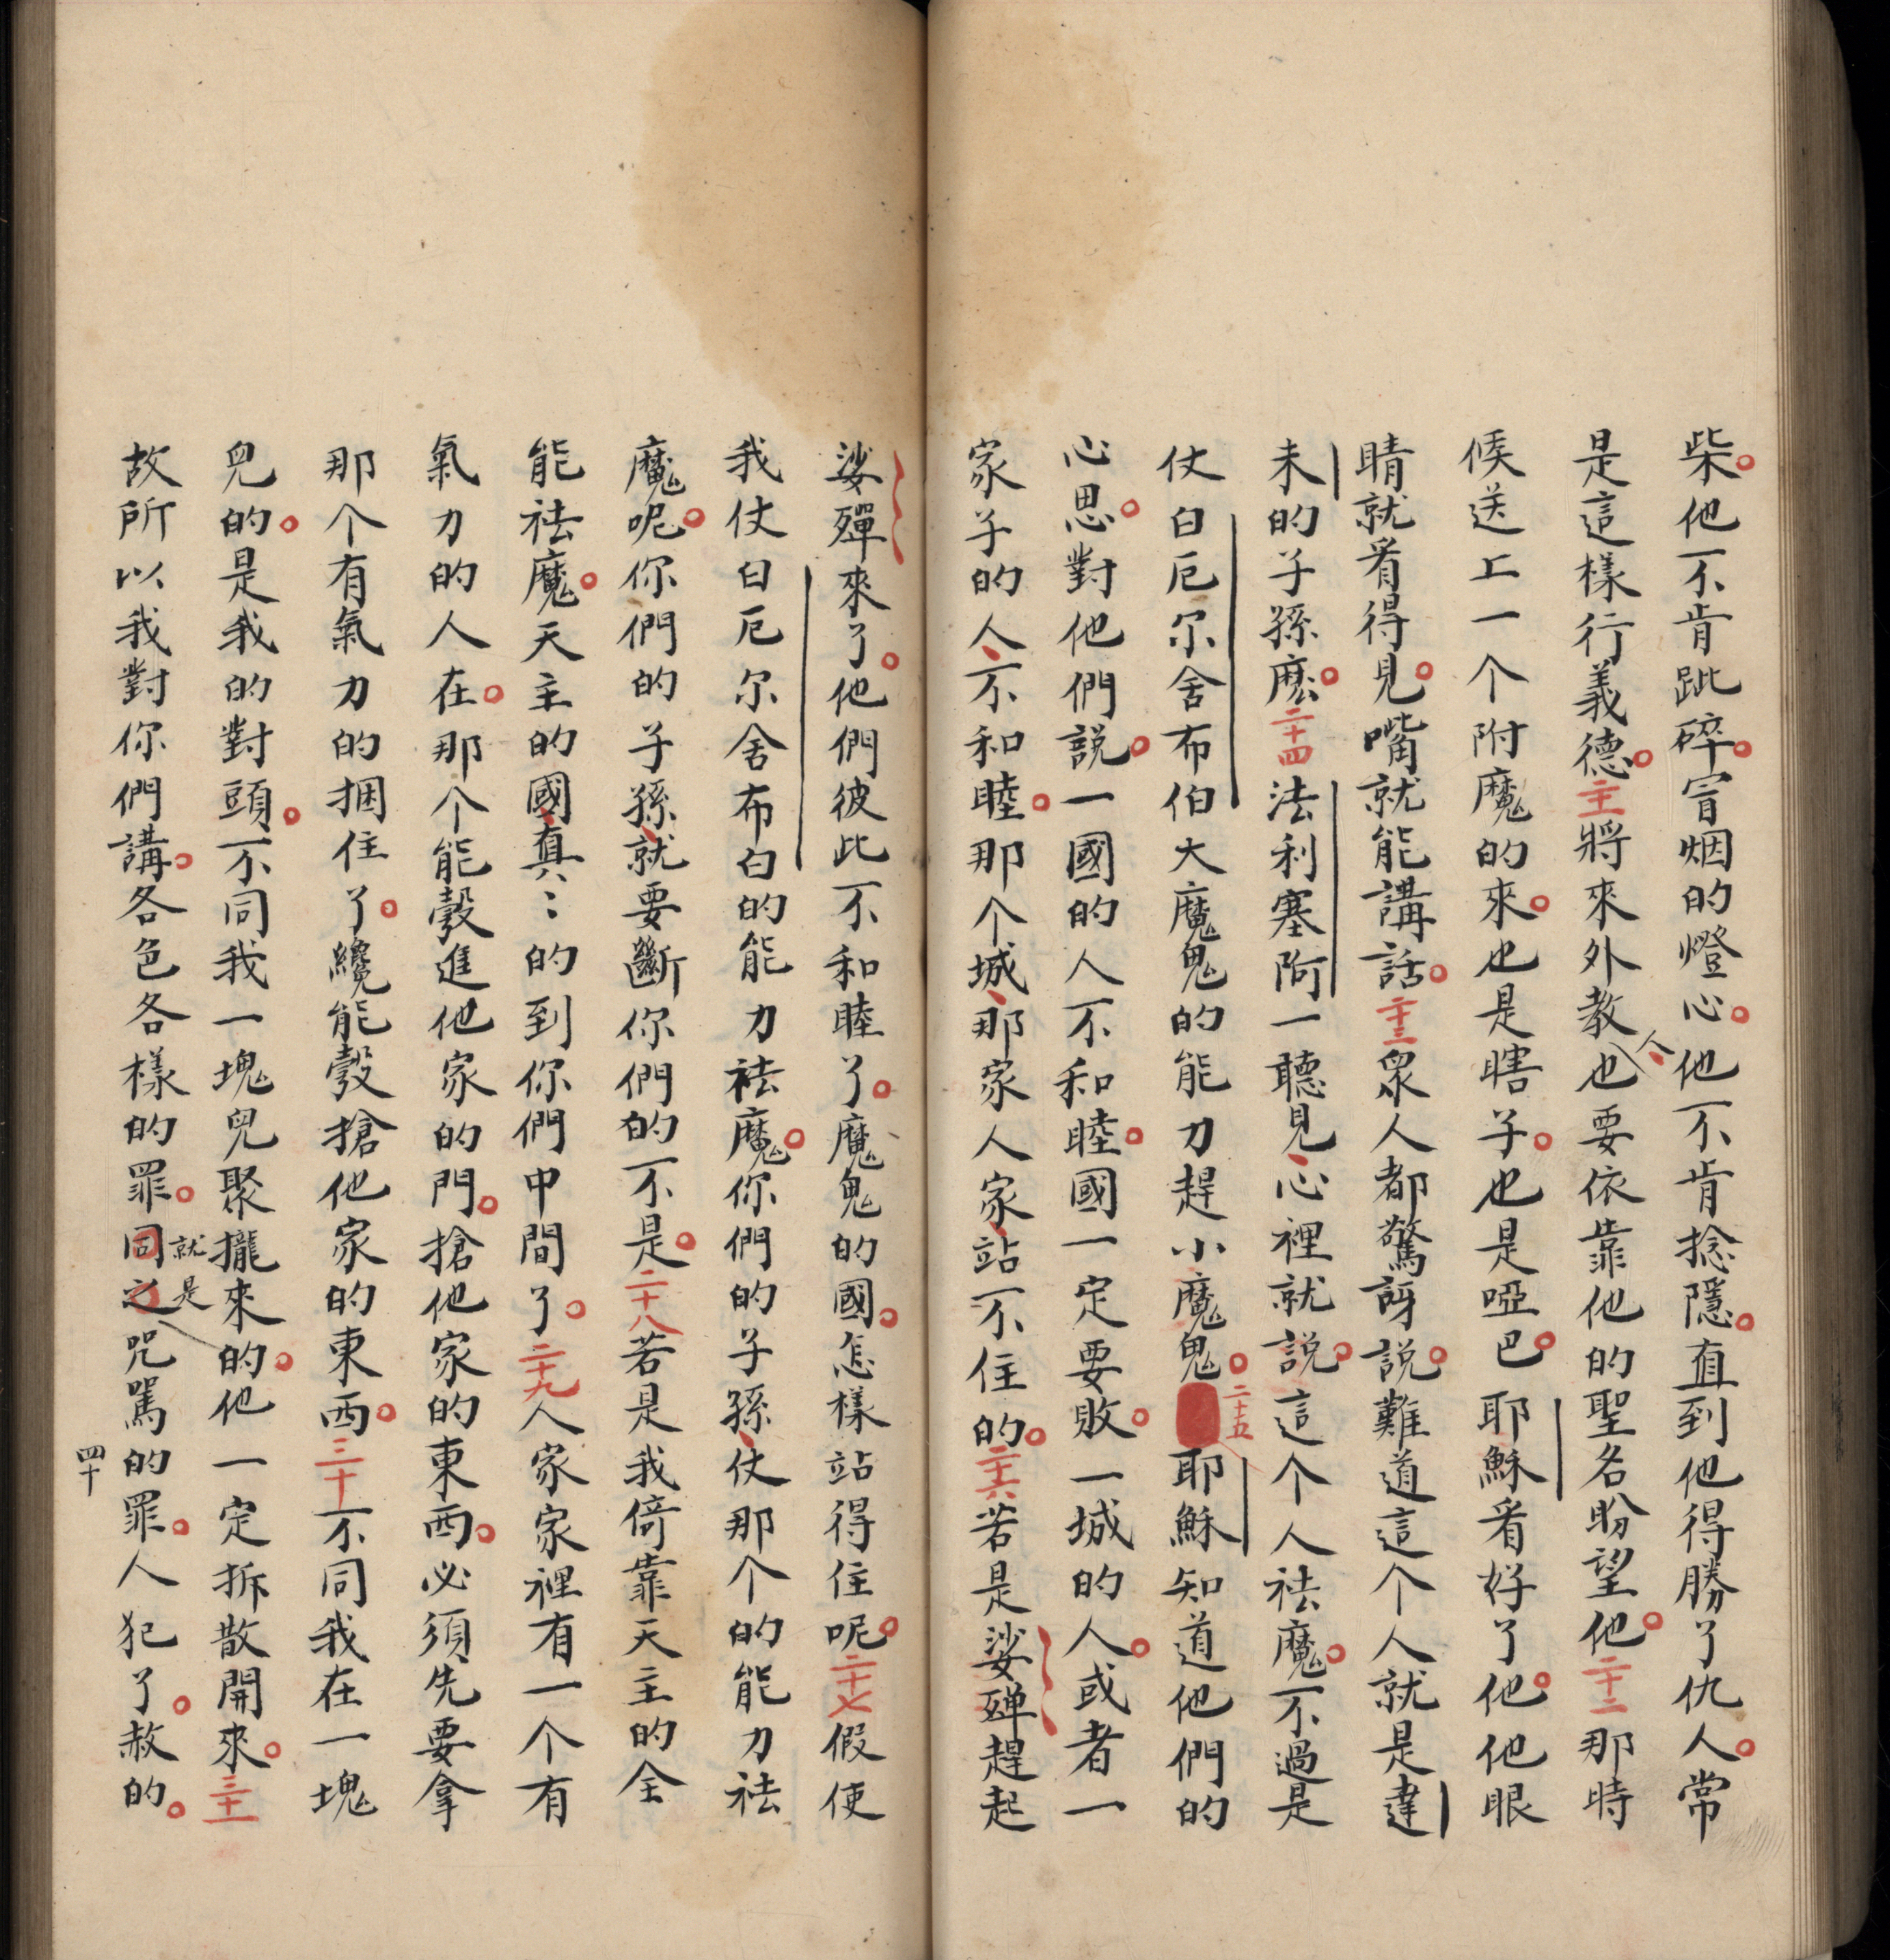 柴他不肯跐碎冒烟的燈心他不肯捻隱直到他得勝了仇人常
是這樣行義德二十一將來外教人也要依靠他的聖名盼望他二十二那時
候送上一个附魔的來也是瞎子也是啞巴耶穌看好了他他眼
睛就看得見嘴就能講話二十三衆人都驚訝說難道這个人就是達
未的子孫麽二十四法利塞阿一聽見心裡就說這个人祛魔不過是
仗白厄尔舍布伯大魔鬼的能力趕小魔鬼二十五耶穌知道他們的
心思對他們說一國的人不和睦國一定要敗一城的人或者一
家子的人不和睦那个城那家人家站不住的二十六若是娑殫趕起
娑殫來了他們彼此不和睦了魔鬼的國怎樣站得住呢二十七假使
我仗白厄尔舍布白的能力祛魔你們的子孫仗那个的能力祛
魔呢你們的子孫就要斷你們的不是二十八若是我倚靠天主的全
能祛魔天主的國真〻的到你們中間了二十九人家家裡有一个有
氣力的人在那个能彀進他家的門搶他家的東西必須先要拿
那个有氣力的捆住了纔能彀搶他家的東西三十不同我在一塊
兒的是我的對頭不同我一塊兒聚攏來的他一定拆散開來三十一
故所以我對你們講各色各樣的罪同之就是咒駡的罪人犯了赦的
四十